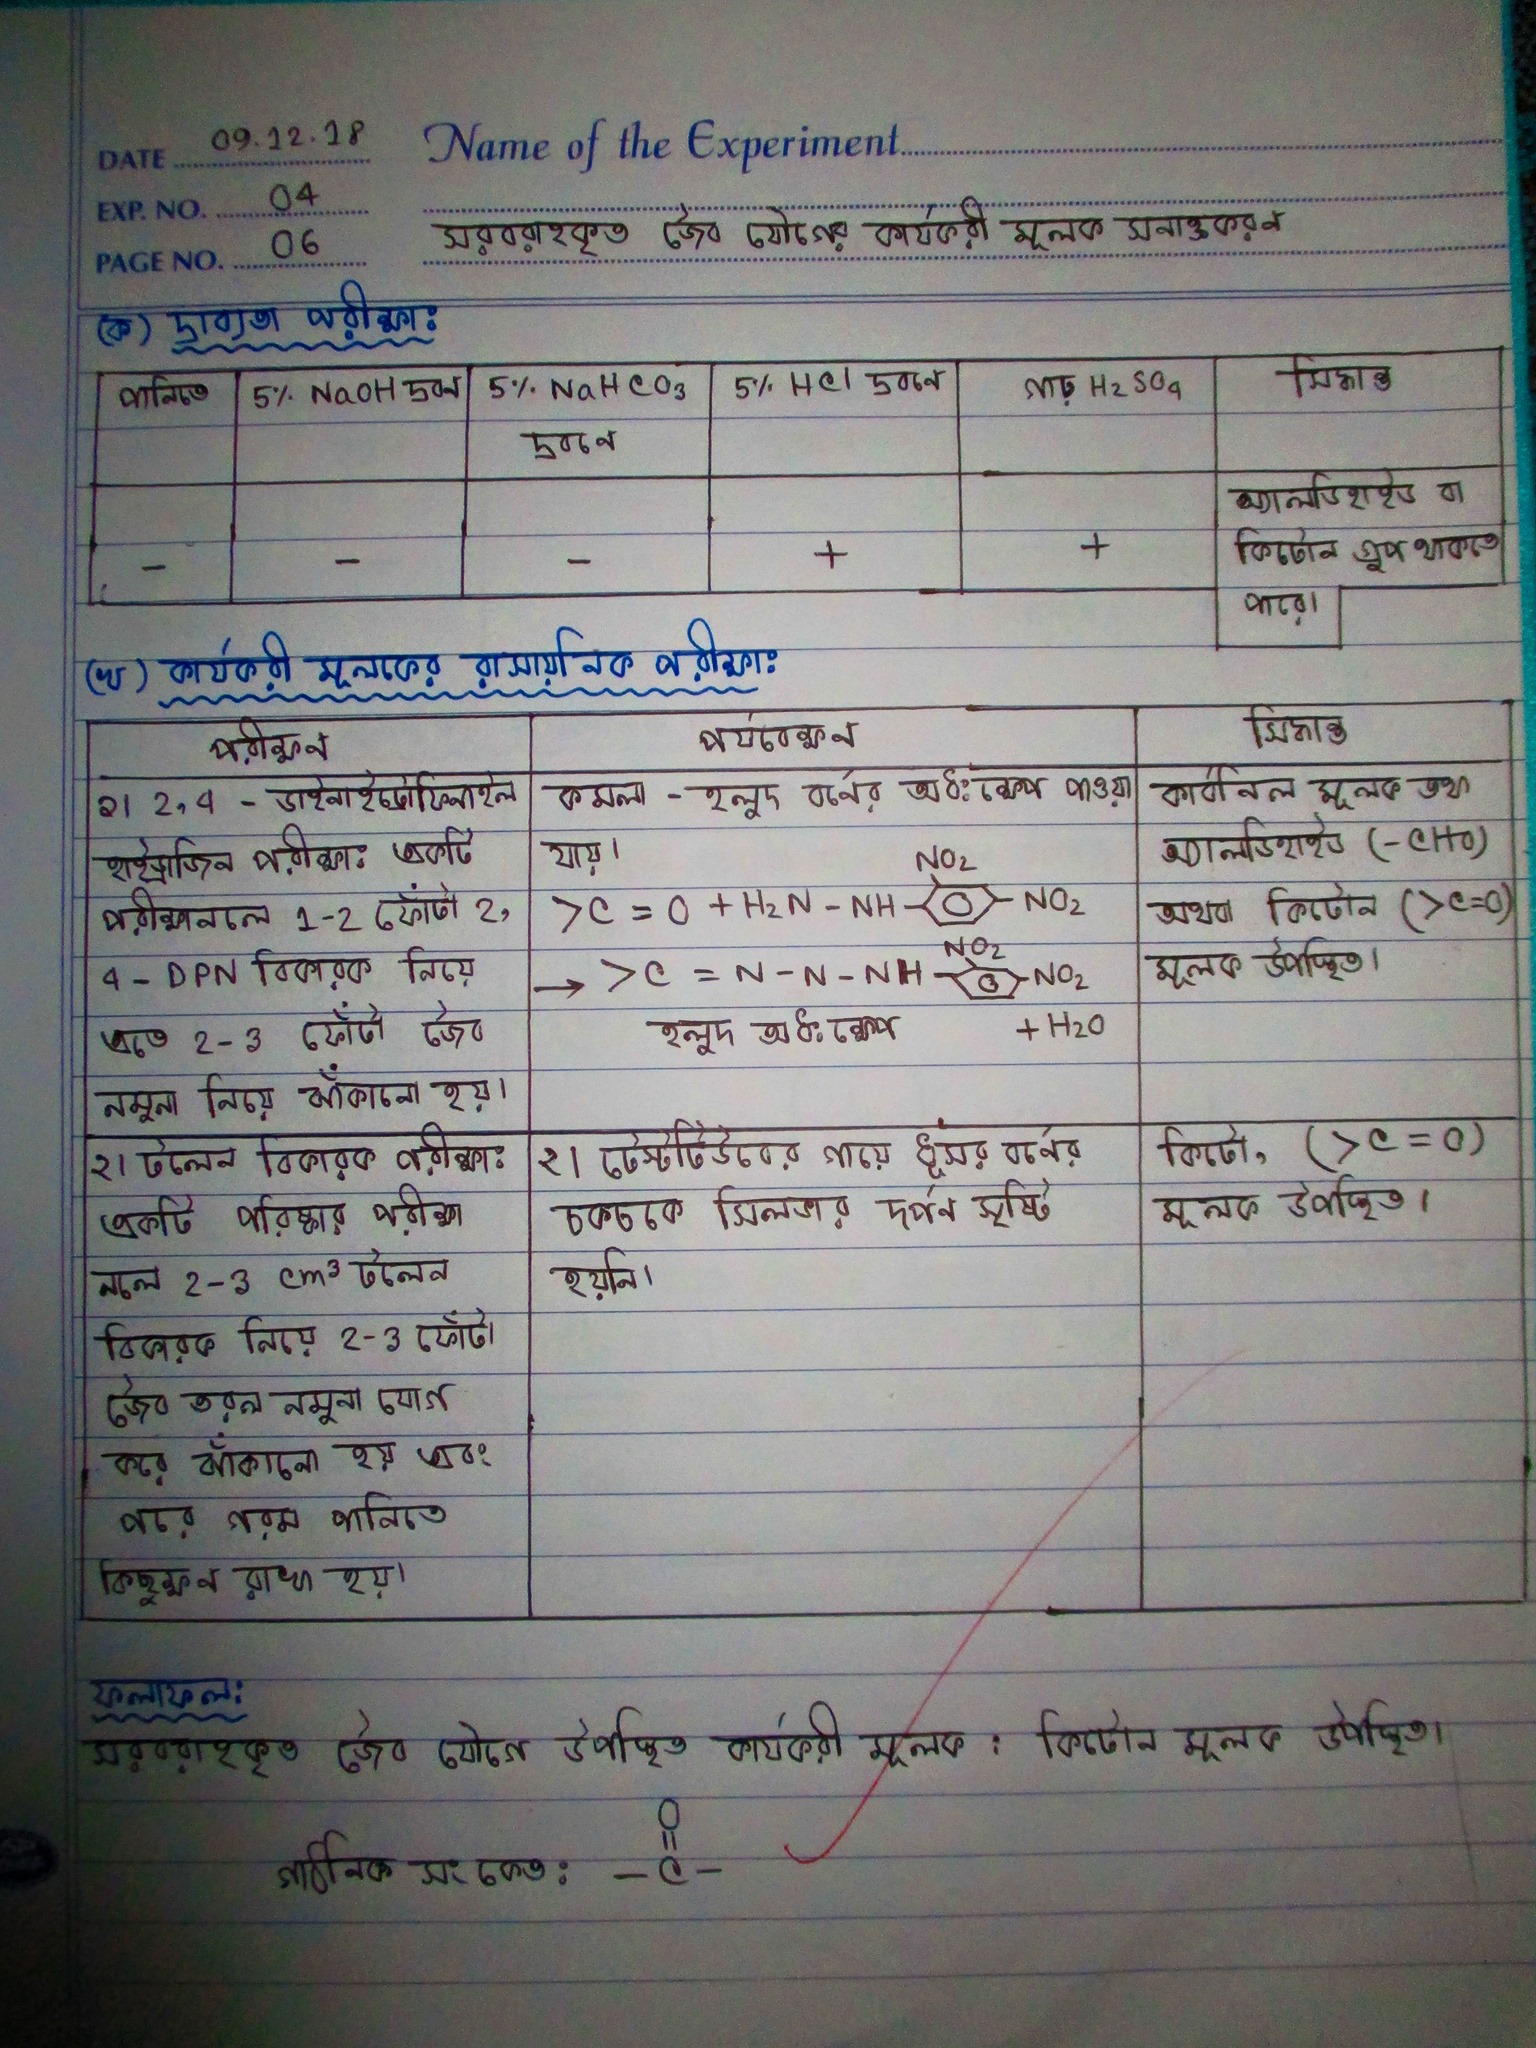 DATE 09.12.18
Name of the Experiment
EXP. NO. 04
PAGE NO. 06
সরবরাহকৃত জৈব যৌগের কার্যকরী মূলক সনাক্তকরন
(ক) দ্রাব্যতা পরীক্ষা:
পানিতে 5% NaOH দ্রবনে 5% NaHCO3 5% HCl দ্রবনে গাঢ় H2SO4 সিদ্ধান্ত
দ্রবনে
অ্যালডিহাইড বা
- - - + + কিটোন গ্রুপ থাকতে
পারে।
(খ) কার্যকরী মূলকের রাসায়নিক পরীক্ষা:
পরীক্ষন পর্যবেক্ষন সিদ্ধান্ত
১। 2,4 - ডাইনাইট্রোফিনাইল
হাইড্রাজিন পরীক্ষা: একটি
পরীক্ষানলে 1-2 ফোঁটা 2,
4 - DPN বিকারক নিয়ে
এতে 2-3 ফোঁটা জৈব
নমুনা নিয়ে ঝাঁকানো হয়।
কমলা - হলুদ বর্নের অধঃক্ষেপ পাওয়া
যায়।
NO2
>C = O + H2N - NH - NO2
NO2
→ >C = N - N - NH - NO2
হলুদ অধঃক্ষেপ + H2O
কার্বনিল মূলক তথা
অ্যালডিহাইড (-CHO)
অথবা কিটোন (>C=O)
মূলক উপস্থিত।
২। টলেন বিকারক পরীক্ষা:
একটি পরিষ্কার পরীক্ষা
নলে 2-3 cm³ টলেন
বিকারক নিয়ে 2-3 ফোঁটা
জৈব তরল নমুনা যোগ
করে ঝাঁকানো হয় এবং
পরে গরম পানিতে
কিছুক্ষন রাখা হয়।
২। টেস্টটিউবের গায়ে ধূসর বর্নের
চকচকে সিলভার দর্পন সৃষ্টি
হয়নি।
কিটো, (>C = O)
মূলক উপস্থিত।
ফলাফল:
সরবরাহকৃত জৈব যৌগে উপস্থিত কার্যকরী মূলক : কিটোন মূলক উপস্থিত।
O
||
গাঠনিক সংকেত: - C -